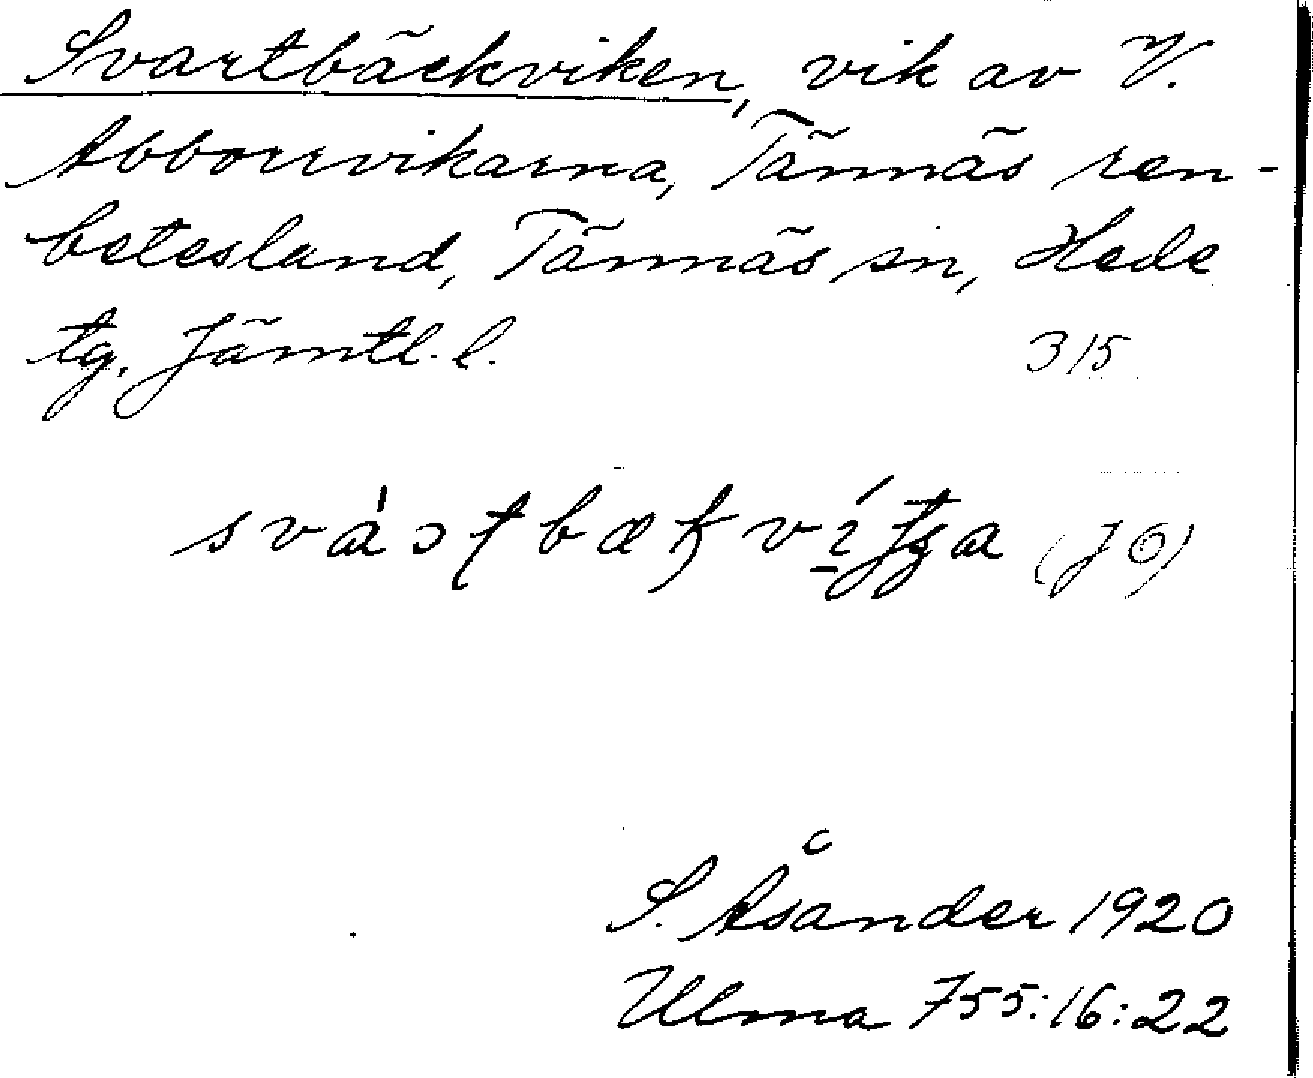 Svartbäckviken, vik av V.
Abborrvikarna, Tännäs ren-
betesland, Tännäs sn, Hede
tg, Jämtl. l. 315
(JÖ)
S. Åsander 1920
Ulma 755:16:22